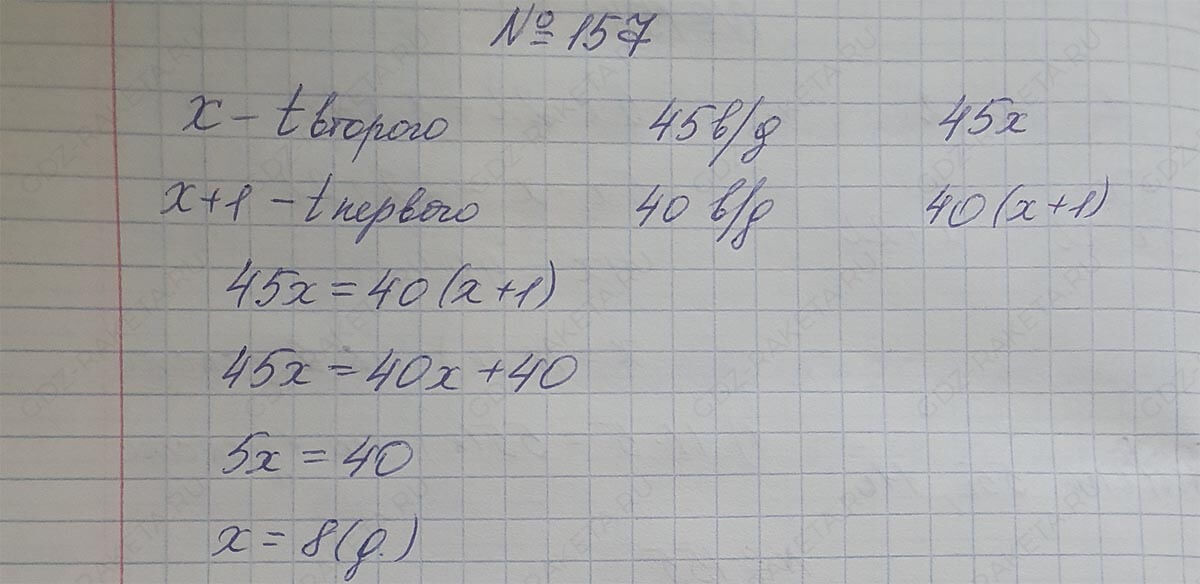 № 157
x – t второго 45 в/д 45x
x+1 – t первого 40 в/д 40(x+1)
45x = 40(x+1)
45x = 40x + 40
5x = 40
x = 8(д.)